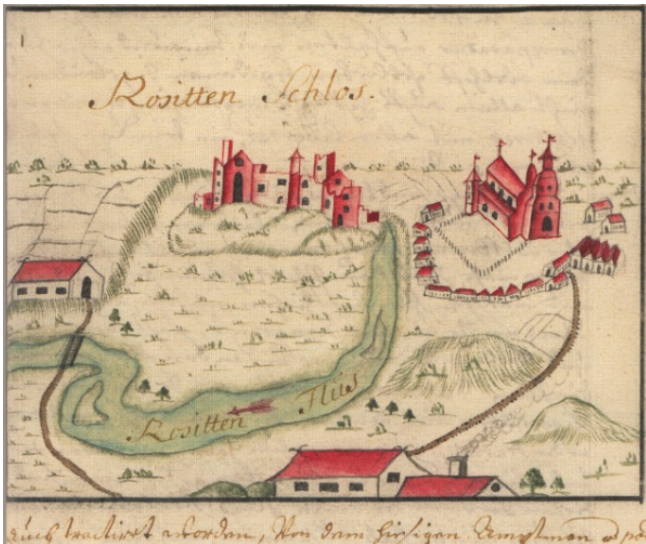 Rositten Schlos.
Rositten Flüs
auch tractirt worden, Von dem hiesigen